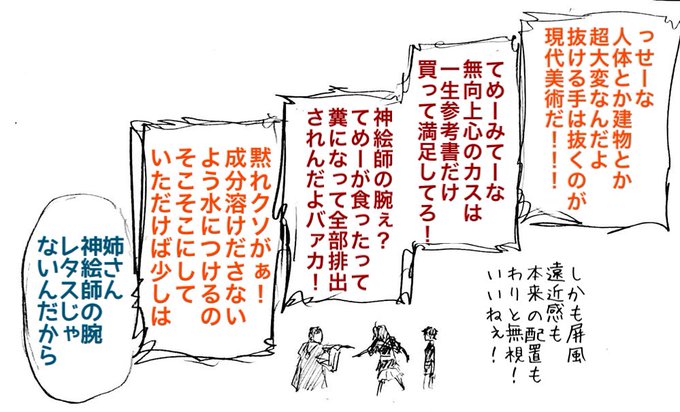 っせーな
人体とか建物とか
超大変なんだよ
抜ける手は抜くのが
現代美術だ!!!
しかも屏風
遠近感も
本来の配置も
わりと無視!
いいねぇ!
てめーみてーな
無向上心のカスは
一生参考書だけ
買って満足してろ!
神絵師の腕ぇ?
てめーが食ったって
糞になって全部排出
されんだよバァカ!
黙れクソがぁ!
成分溶けださない
よう水につけるの
そこそこにして
いただけば少しは
姉さん
神絵師の腕
レタスじゃ
ないんだから